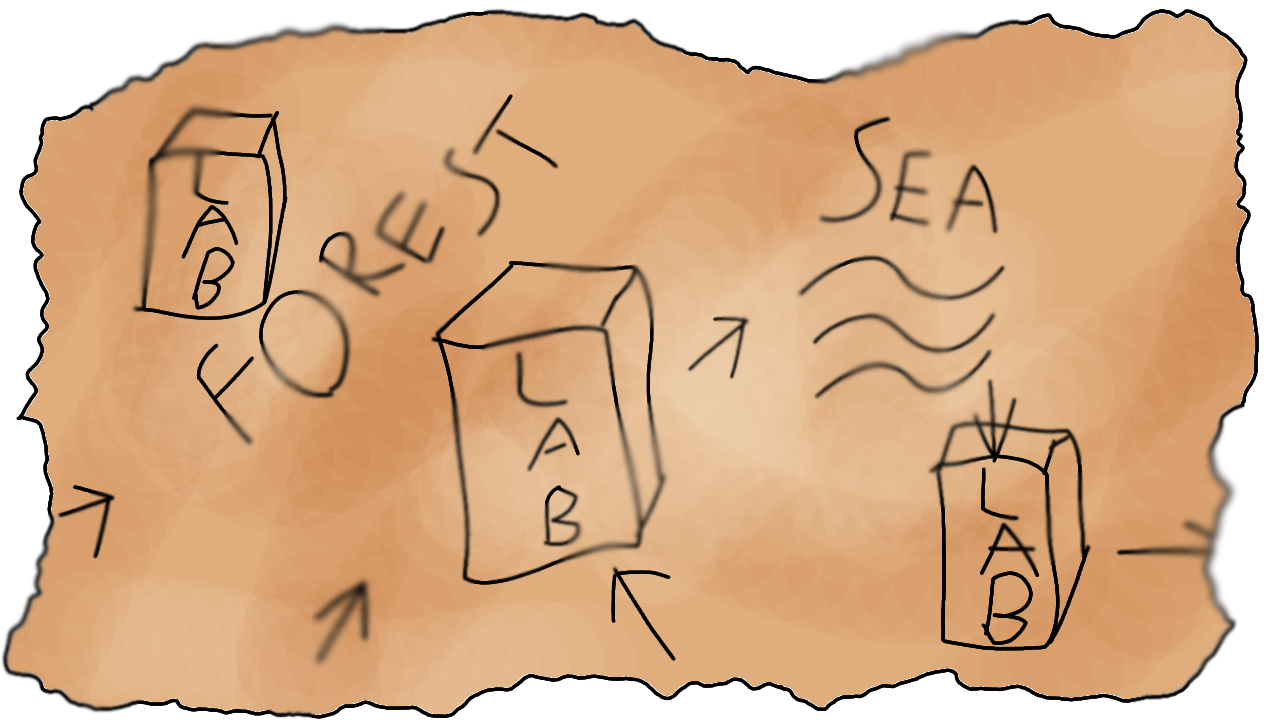 LAB
FOREST
LAB
SEA
LAB